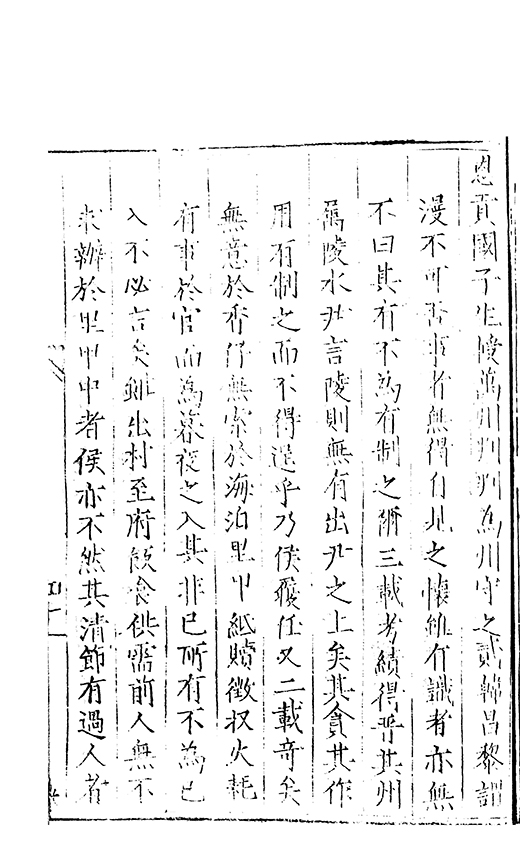 恩貢國子生憤萬州判判為州守之貳韓昌黎謂
漫不可否事者無得行此之懷雖有識者亦無
不曰其有不為有制之爾三載考績得晉其州
萬陵水尹言陵則無有出尹之上矣其貪其作
用有制之而不得逞乎乃侯履任又二載奇矣
無意於香仔無索於海泊里甲紙贖徵收火耗
有事於官而為暮夜之入其非已所有不為已
入不必言矣雖出村至府飲食供需前人無不
求辦於里甲中者侯亦不然其清節有過人者